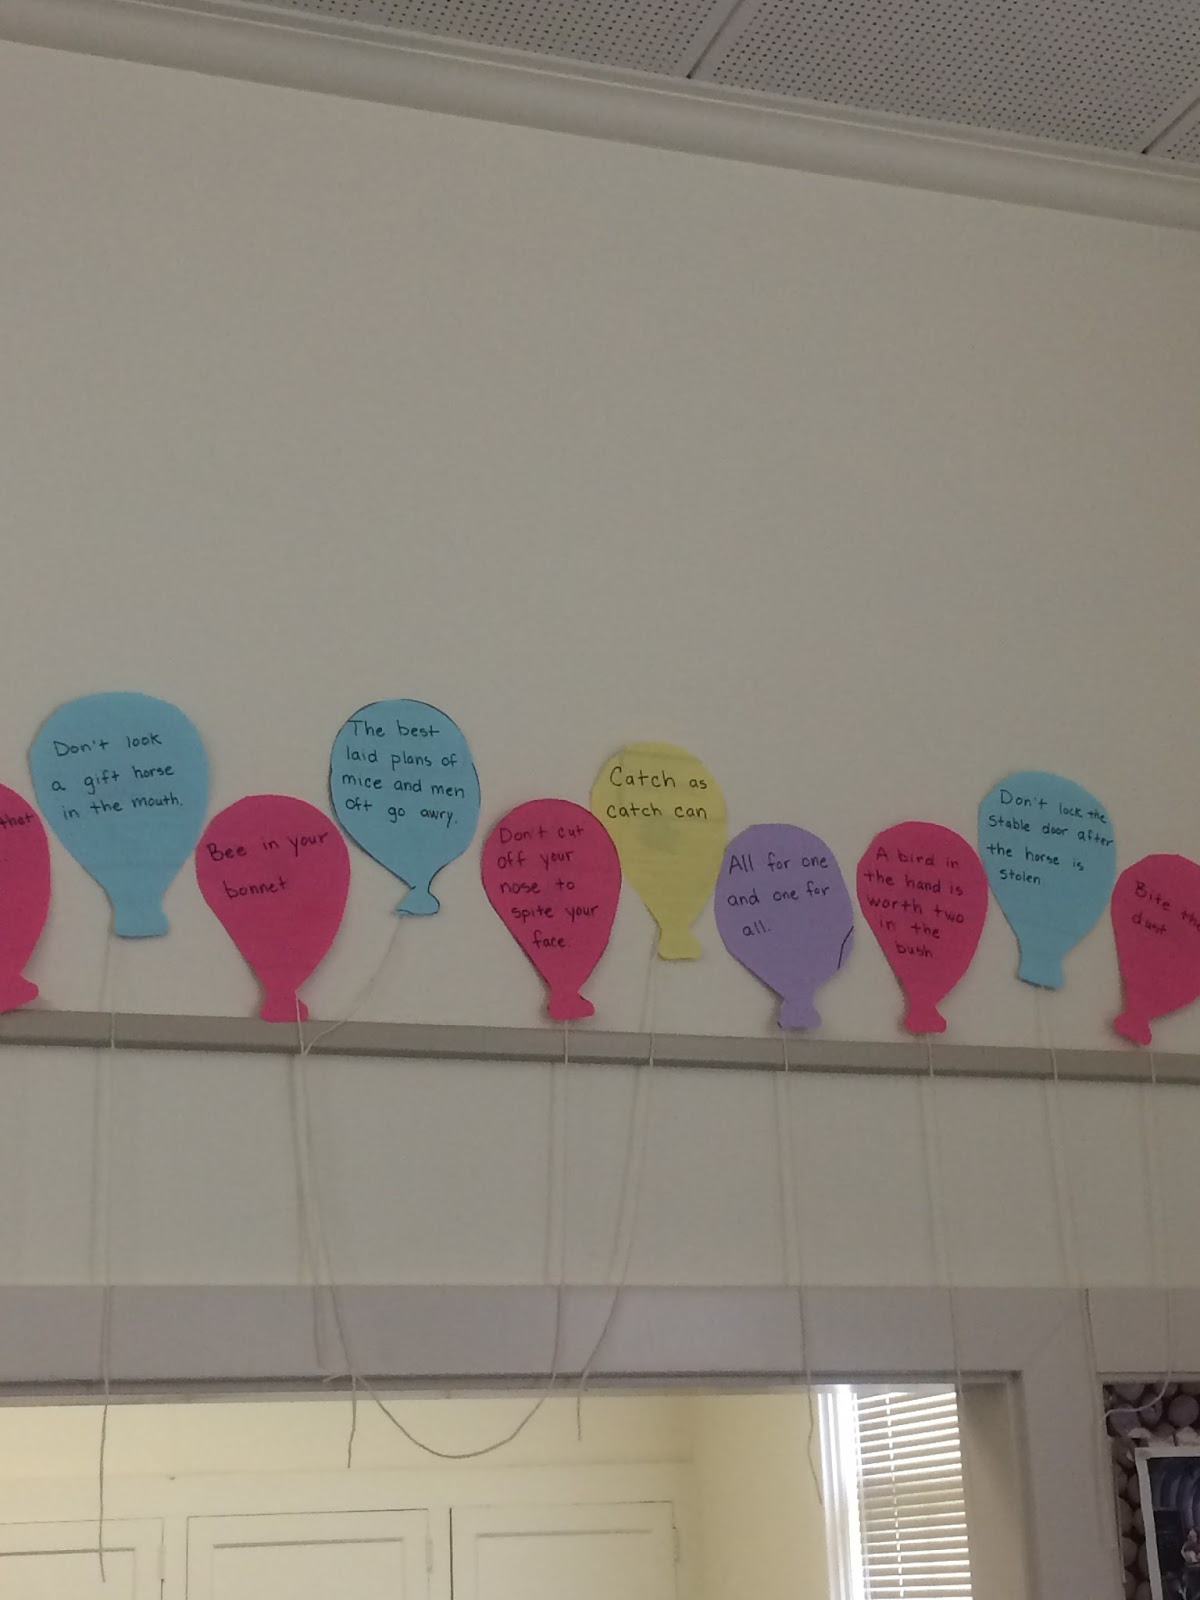 that
Don't look
a gift horse
in the mouth.
Bee in your
bonnet
The best
laid plans of
mice and men
oft go awry.
Don't cut
off your
nose to
spite your
face.
Catch as
catch can
All for one
and one for
all.
A bird in
the hand is
worth two
in the
bush
Don't lock the
stable door after
the horse is
stolen
Bite the
dust